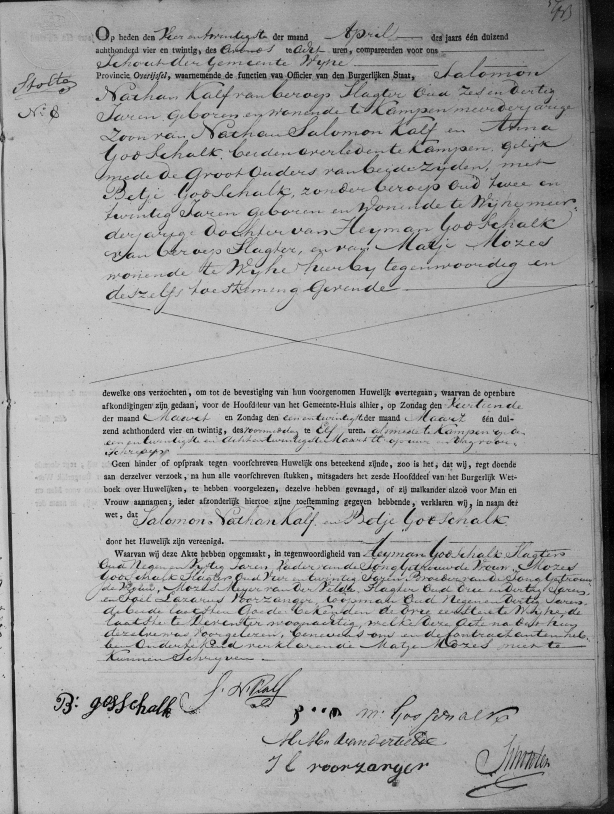 Op heden den Vier en twintigst der maand April des jaars één duizend
achthonderd vier en twintig, des avonds te acht uren, compareerden voor ons
Schout der Gemeente Wijhe
Provincie Overijssel, waarnemende de functien van Officier van den Burgerlijken Staat, Salomon
N.° 8
Nathan Kalf van beroep Slagter Oud Zes en Dertig
Jaren, geboren en wonende te Kampen meerderjarige
Zoon van Nathan Salomon Kalf en Anna
Godschalk, beiden overleden te Kampen, gelijk
mede de Groot Ouders van beyde zyden, met
Betje Godschalk, zonder beroep oud twee en
twintig Jaren geboren en Wonende te Wijhe meer-
derjarige Dochter van Heyman Godschalk
van beroep Slagter, en van Matje Mozes
wonende te Wijhe hierby tegenwoordig en
deszelfs toestemming Gevende
dewelke ons verzochten, om tot de bevestiging van hun voorgenomen Huwelijk overtegaan, waarvan de openbare
afkondigingen zijn gedaan, voor de Hoofddeur van het Gemeente-Huis alhier, op Zondag den Veertiende
der maand Maart en Zondag den een en twintigst der maand Maart één dui-
zend achthonderd vier en twintig, des voormiddag te Elf uren. alsmede te Kampen op den
een en twintigste en achten twintigste Maart
Geen hinder of opspraak tegen voorschreven Huwelijk ons beteekend zijnde, zoo is het, dat wij, regt doende
aan derzelver verzoek, na hun alle voorschreven stukken, mitsgaders het zesde Hoofddeel van het Burgerlijk Wet-
boek over Huwelijken, te hebben voorgelezen, dezelve hebben gevraagd, of zij malkander alzoo voor Man en
Vrouw aannamen; ieder afzonderlijk hiertoe zijne toestemming gegeven hebbende, verklaren wij, in naam der
wet, dat Salomon Nathan Kalf en Betje Godschalk
door het Huwelijk zijn vereenigd.
Waarvan wij deze Akte hebben opgemaakt, in tegenwoordigheid van Heyman Godschalk Slagter
Oud Negen en Vyftig Jaren, Vader van de Jong Getrouwde Vrouw, Mozes
Godschalk Slagter Oud Vier en twintig Jaren Broeder van de Jong Getrouw
de Vrouw, Mozes Meyer van der Velde, Slagter Oud Drie en Dertig Jaren
en Joel Lazarus Voorzanger, Oud Negen en Dertig Jaren
de beide laatsten Goede Bekenden de drie eerste te Wijhe de
laatste te Deventer woonachtig, welke deze Acte na dat hun
dezelve was Voorgelezen, benevens ons en de Contractanten heb-
ben Onderteekend verklarende Matje Mozes niet te
kunnen Schryven
B: gosschalk
S. N. Kalf
M Godschalk
M M vander velde
J L voorzanger